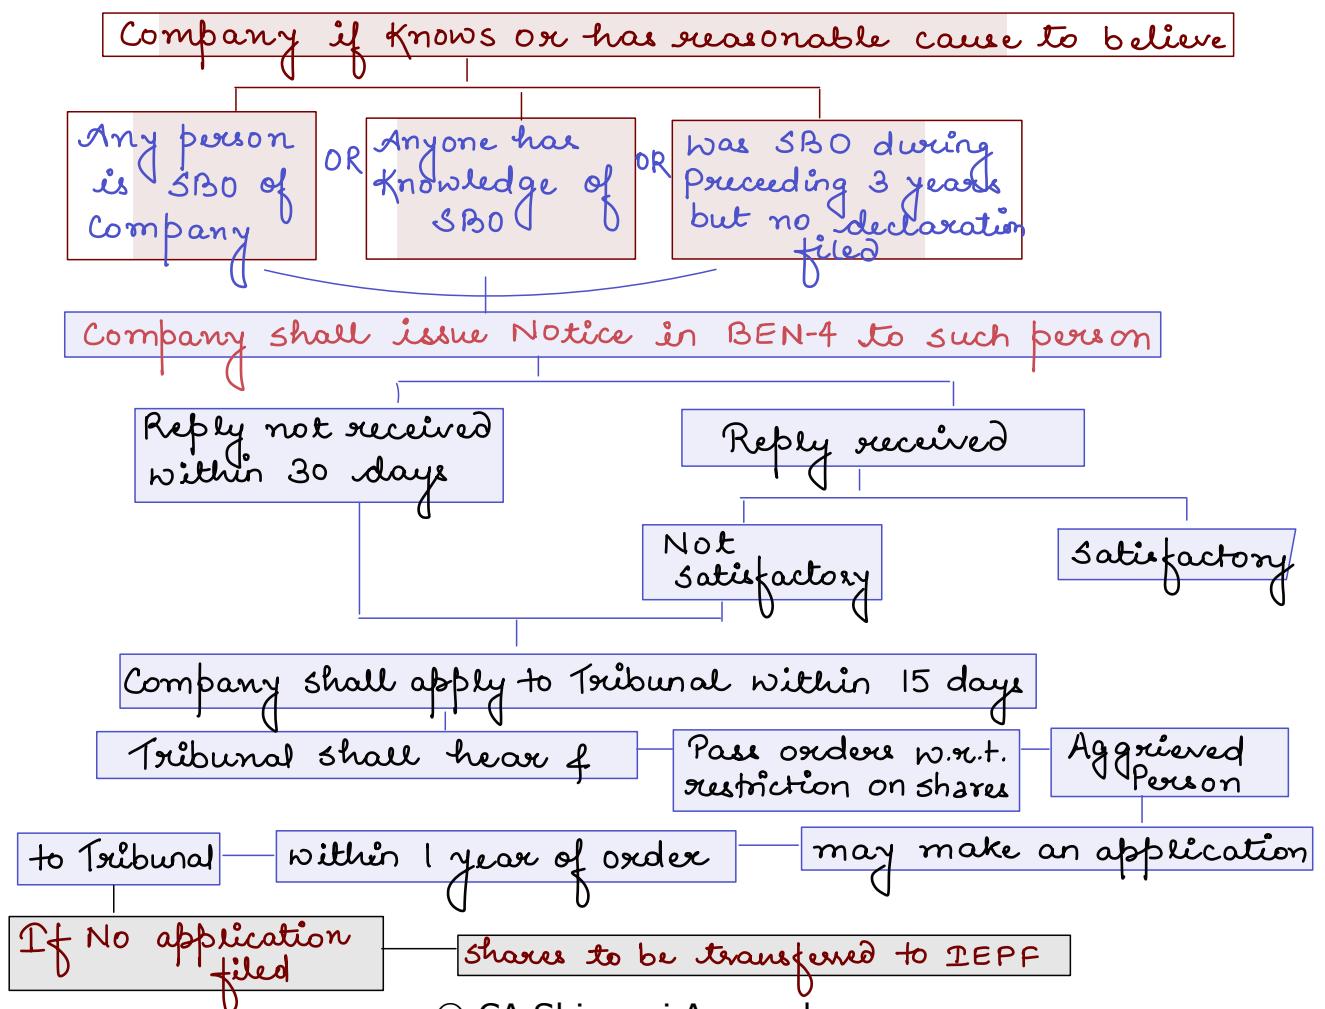 Company if Knows or has reasonable cause to believe
Any person
is SBO of
Company
OR
Anyone has
Knowledge of
SBO
OR
Was SBO during
Preceeding 3 years
but no declaration
filed
Company shall issue Notice in BEN-4 to such person
Reply not received
within 30 days
Reply received
Not
satisfactory
Satisfactory
Company shall apply to Tribunal within 15 days
Tribunal shall hear &
Pass orders w.r.t.
restriction on shares
Aggrieved
Person
may make an application
within 1 year of order
to Tribunal
If No application
filed
Shares to be transferred to IEPF